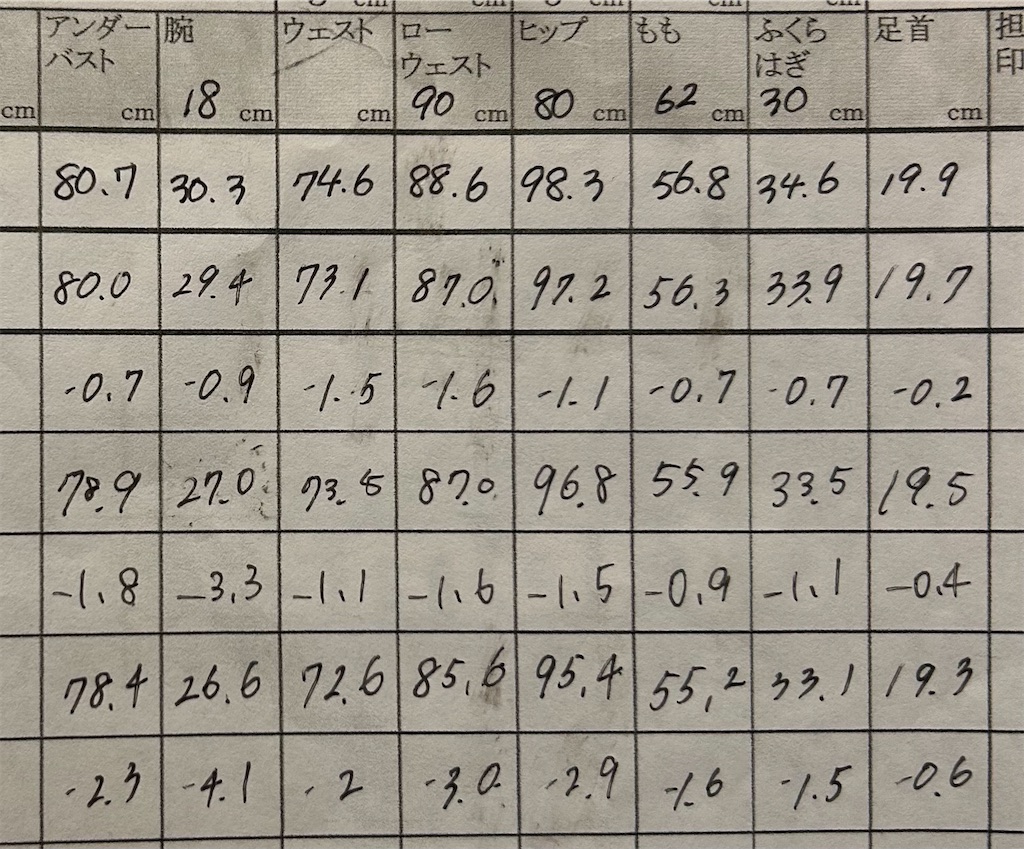 cm cm cm cm
アンダー 腕 ウェスト ロー ヒップ もも ふくら 足首 担
バスト ウェスト はぎ 印
cm cm 18 cm cm 90 cm 80 cm 62 cm 30 cm cm
80.7 30.3 74.6 88.6 98.3 56.8 34.6 19.9
80.0 29.4 73.1 87.0 97.2 56.3 33.9 19.7
-0.7 -0.9 -1.5 -1.6 -1.1 -0.7 -0.7 -0.2
78.9 27.0 73.5 87.0 96.8 55.9 33.5 19.5
-1.8 -3.3 -1.1 -1.6 -1.5 -0.9 -1.1 -0.4
78.4 26.6 72.6 85.6 95.4 55.2 33.1 19.3
-2.3 -4.1 -2 -3.0 -2.9 -1.6 -1.5 -0.6